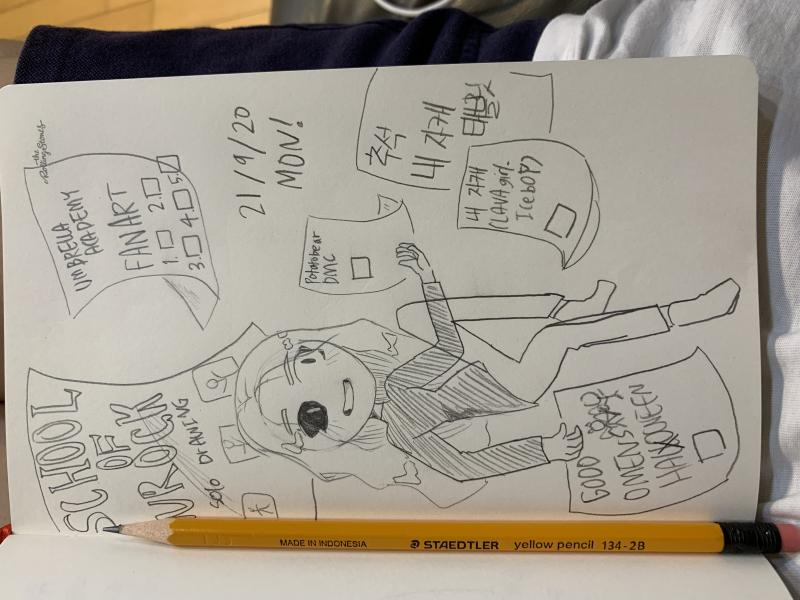 the
Rolling Stones
UMBRELLA
ACADEMY
FANART
1. 2.
3. 4. 5.
21/9/20
MON!
추석
내 자캐
내 자캐
(LAVA girl.
Ice bOP)
Potatobear
DMC
SCHOOL
OF
ROCK
SOLO DRAWING
GOOD
OMENS
HALLOWEEN
MADE IN INDONESIA
STAEDTLER
yellow pencil 134-2B